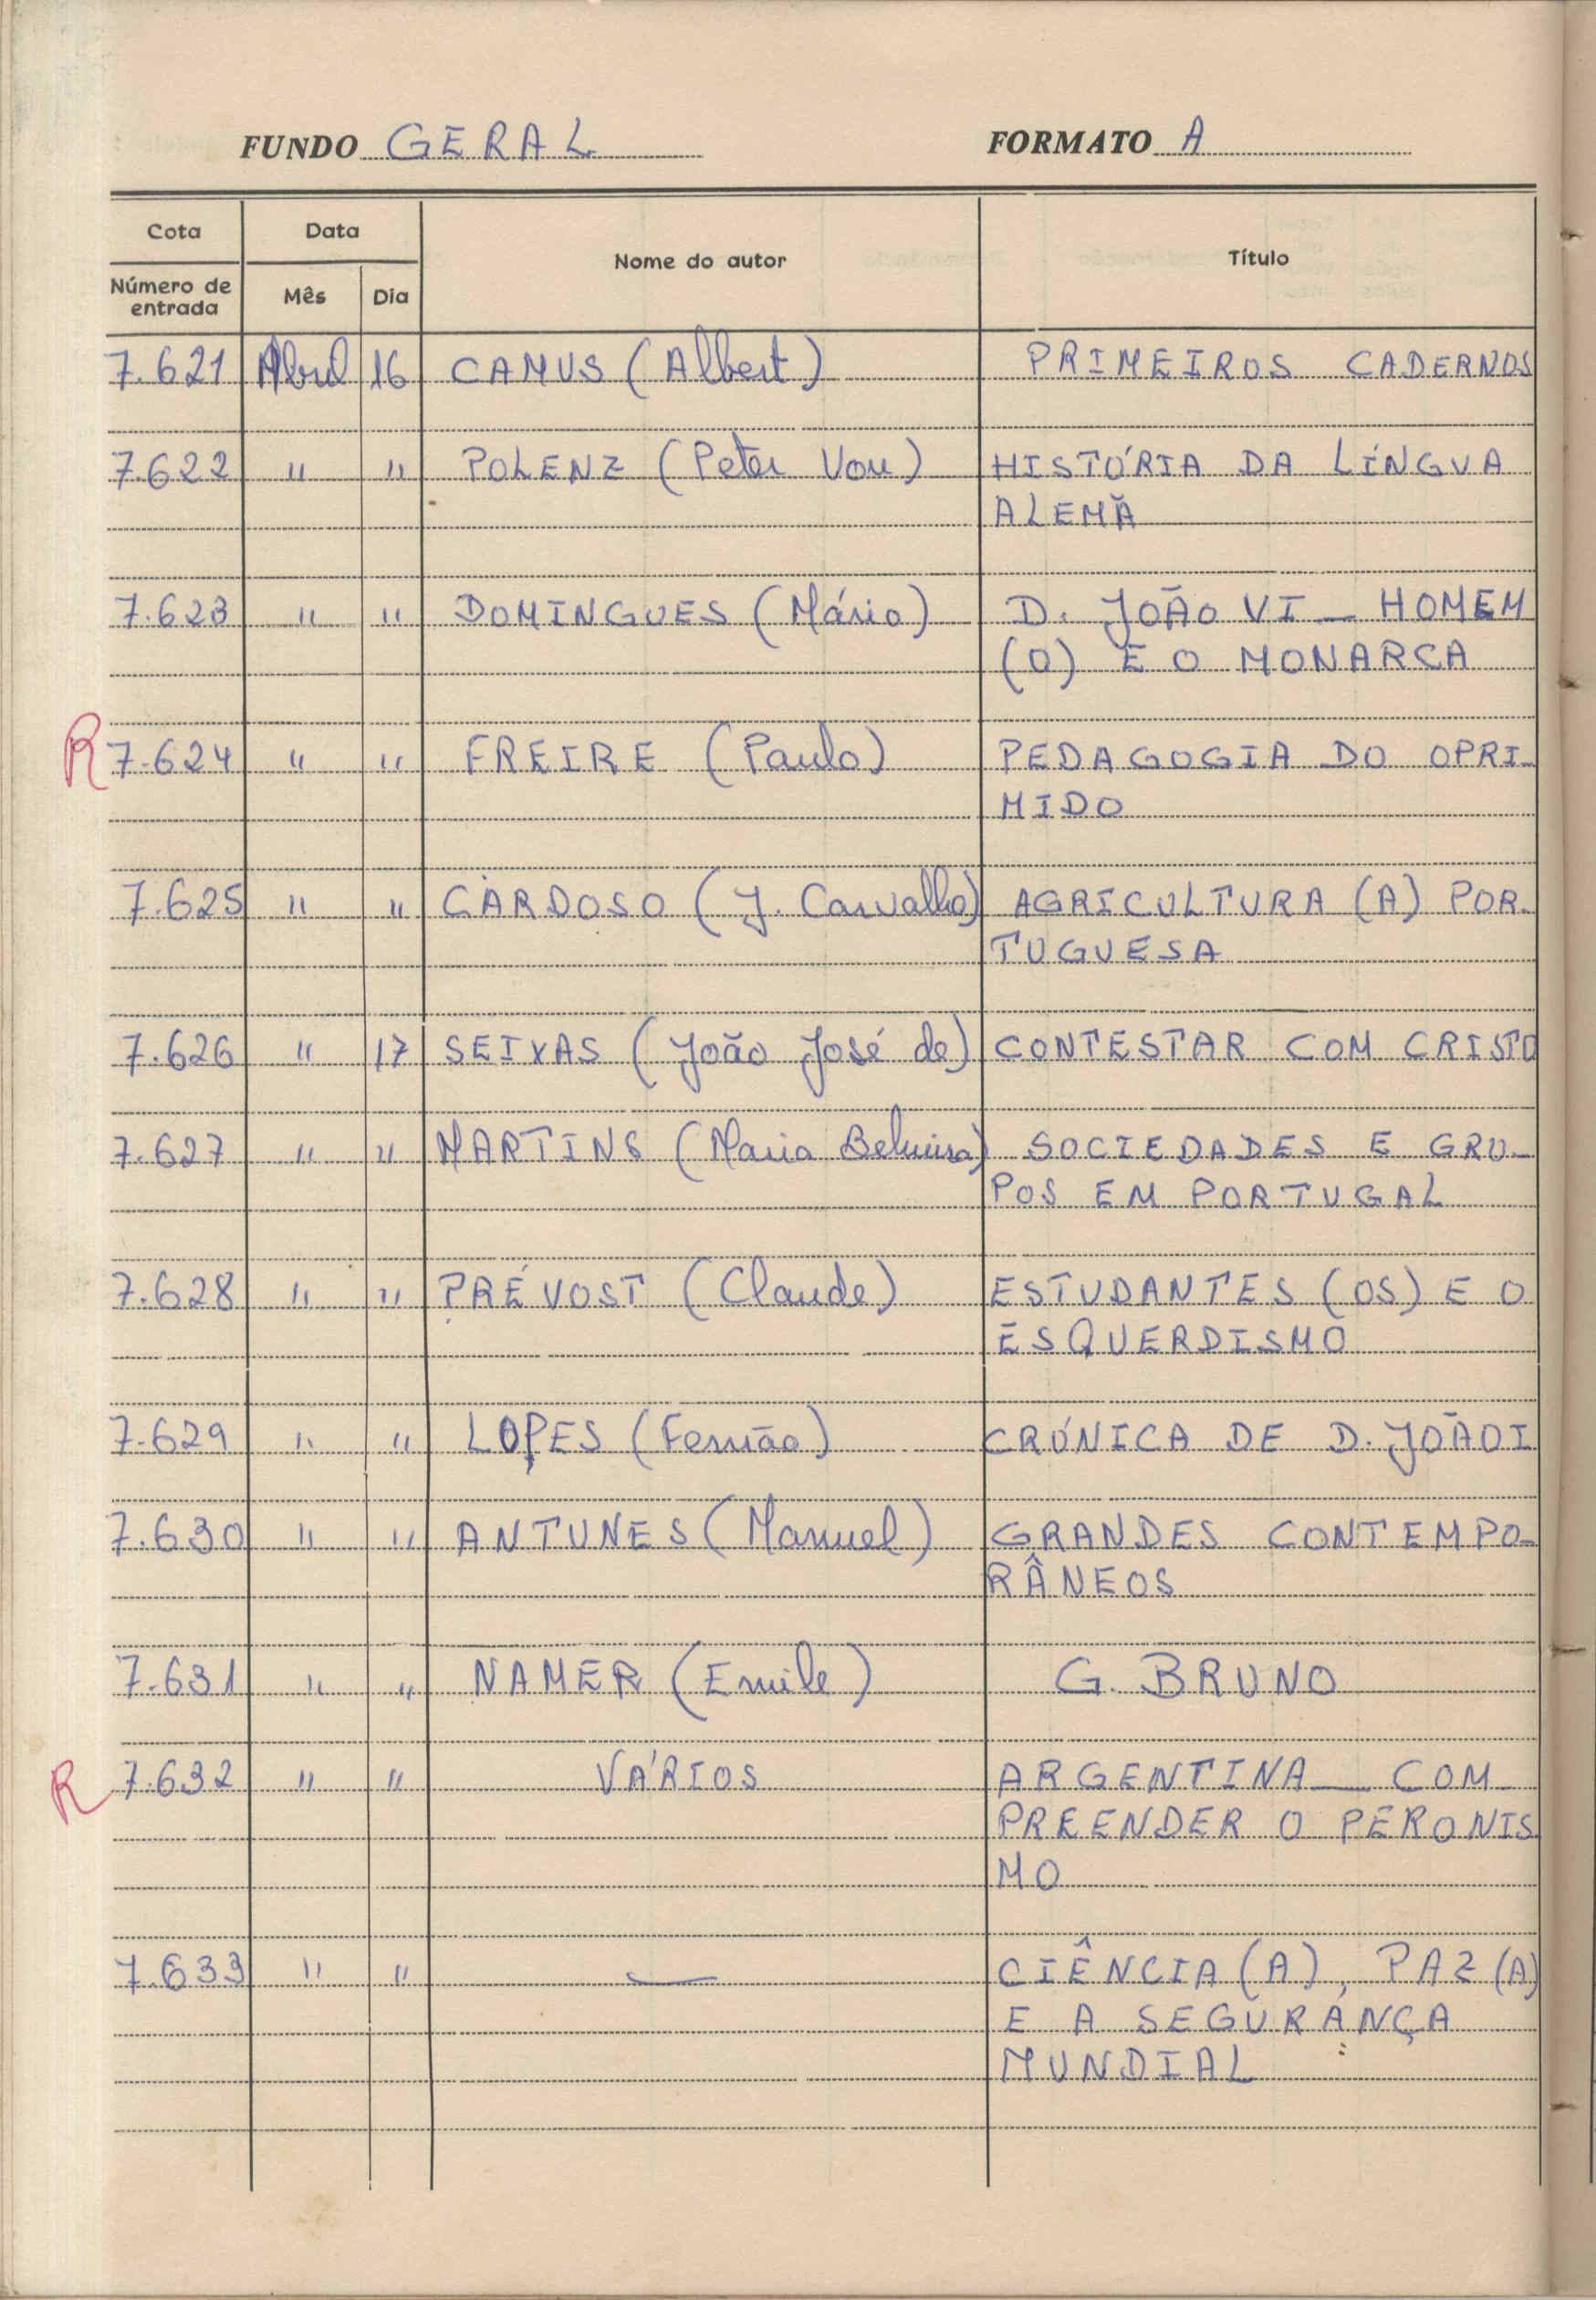 FUNDO GERAL FORMATO A
Cota Data Nome do autor Título
Número de entrada Mês Dia
7.621 Abril 16 CAMUS (Albert) PRIMEIROS CADERNOS
7.622 " " POLENZ (Peter Von) HISTÓRIA DA LÍNGUA
ALEMÃ
7.623 " " DOMINGUES (Mário) D. JOÃO VI — HOMEM
(O) E O MONARCA
R 7.624 " " FREIRE (Paulo) PEDAGOGIA DO OPRI-
MIDO
7.625 " " CARDOSO (J. Carvalho) AGRICULTURA (A) POR-
TUGUESA
7.626 " 17 SEIXAS (João José de) CONTESTAR COM CRISTO
7.627 " " MARTINS (Maria Belmira) SOCIEDADES E GRU-
POS EM PORTUGAL
7.628 " " PRÉVOST (Claude) ESTUDANTES (OS) E O
ESQUERDISMO
7.629 " " LOPES (Fernão) CRÓNICA DE D. JOÃO I
7.630 " " ANTUNES (Manuel) GRANDES CONTEMPO-
RÂNEOS
7.631 " " NAMER (Emile) G. BRUNO
R 7.632 " " VÁRIOS ARGENTINA — COM-
PREENDER O PERONIS
MO
7.633 " " — CIÊNCIA (A), PAZ (A)
E A SEGURANÇA
MUNDIAL